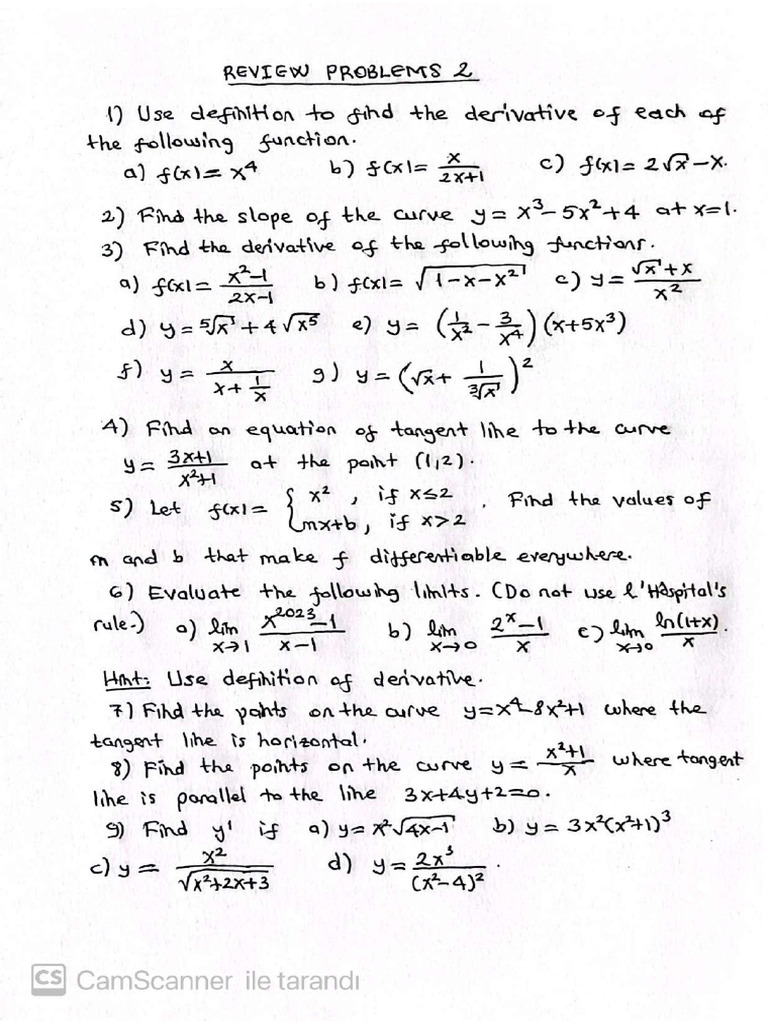 REVIEW PROBLEMS 2
1) Use definition to find the derivative of each of
the following function.
a) f(x) = x⁴ b) f(x) = x/(2x+1) c) f(x) = 2√x - x.
2) Find the slope of the curve y = x³ - 5x² + 4 at x=1.
3) Find the derivative of the following functions.
a) f(x) = (x²-1)/(2x-1) b) f(x) = √(1-x-x²) c) y = (√x + x)/x²
d) y = ⁵√x + 4√x⁵ e) y = (1/x² - 3/x⁴)(x+5x³)
f) y = x/(x + 1/x) g) y = (√x + 1/³√x)²
4) Find an equation of tangent line to the curve
y = (3x+1)/(x²+1) at the point (1,2).
5) Let f(x) = { x² , if x≤2 mx+b, if x>2 . Find the values of
m and b that make f differentiable everywhere.
6) Evaluate the following limits. (Do not use l'Hôspital's
rule.) a) lim x→1 (x²⁰²³-1)/(x-1) b) lim x→0 (2ˣ-1)/x c) lim x→0 ln(1+x)/x .
Hint: Use definition of derivative.
7) Find the points on the curve y=x⁴-8x²+1 where the
tangent line is horizontal.
8) Find the points on the curve y = (x²+1)/x where tangent
line is parallel to the line 3x+4y+2=0.
9) Find y' if a) y = x²√(4x-1) b) y = 3x²(x²+1)³
c) y = x²/√(x²+2x+3) d) y = 2x³/(x²-4)² .
CS CamScanner ile tarandı